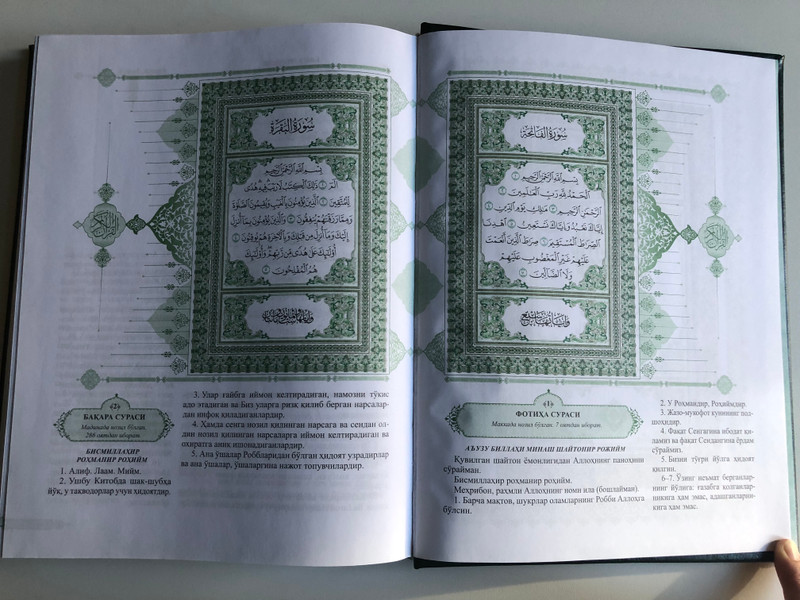 سُورَةُ الْفَاتِحَةِ
بِسْمِ اللَّهِ الرَّحْمَٰنِ الرَّحِيمِ ①
الْحَمْدُ لِلَّهِ رَبِّ الْعَالَمِينَ ②
الرَّحْمَٰنِ الرَّحِيمِ ③ مَالِكِ يَوْمِ الدِّينِ ④
إِيَّاكَ نَعْبُدُ وَإِيَّاكَ نَسْتَعِينُ ⑤ اهْدِنَا
الصِّرَاطَ الْمُسْتَقِيمَ ⑥ صِرَاطَ الَّذِينَ أَنْعَمْتَ
عَلَيْهِمْ غَيْرِ الْمَغْضُوبِ عَلَيْهِمْ
وَلَا الضَّالِّينَ ⑦
(1)
ФОТИҲА СУРАСИ
Маккада нозил бўлган. 7 оятдан иборат.
АЪУЗУ БИЛЛАҲИ МИНАШ ШАЙТОНИР РОЖИЙМ
Қувилган шайтон ёмонлигидан Аллоҳнинг паноҳини
сўрайман.
Бисмиллаҳир роҳманир роҳийм.
Меҳрибон, раҳмли Аллоҳнинг номи ила (бошлайман).
1. Барча мақтов, шукрлар оламларнинг Робби Аллоҳга
бўлсин.
2. У Роҳмандир, Роҳиймдир.
3. Жазо-мукофот кунининг под-
шоҳидир.
4. Фақат Сенгагина ибодат қи-
ламиз ва фақат Сендангина ёрдам
сўраймиз.
5. Бизни тўғри йўлга ҳидоят
қилгин.
6–7. Ўзинг неъмат берганлар-
нинг йўлига; ғазабга қолганлар-
никига ҳам эмас, адашганларни-
кига ҳам эмас.
سُورَةُ الْبَقَرَةِ
بِسْمِ اللَّهِ الرَّحْمَٰنِ الرَّحِيمِ
الٓمٓ ① ذَٰلِكَ الْكِتَابُ لَا رَيْبَ فِيهِ هُدًى
لِلْمُتَّقِينَ ② الَّذِينَ يُؤْمِنُونَ بِالْغَيْبِ وَيُقِيمُونَ الصَّلَاةَ
وَمِمَّا رَزَقْنَاهُمْ يُنْفِقُونَ ③ وَالَّذِينَ يُؤْمِنُونَ بِمَا أُنْزِلَ
إِلَيْكَ وَمَا أُنْزِلَ مِنْ قَبْلِكَ وَبِالْآخِرَةِ هُمْ يُوقِنُونَ ④
أُولَٰئِكَ عَلَىٰ هُدًى مِنْ رَبِّهِمْ وَأُولَٰئِكَ
هُمُ الْمُفْلِحُونَ ⑤
(2)
БАҚАРА СУРАСИ
Мадинада нозил бўлган.
286 оятдан иборат.
БИСМИЛЛАҲИР
РОҲМАНИР РОҲИЙМ
1. Алиф. Лаам. Мийм.
2. Ушбу Китобда шак-шубҳа
йўқ, у тақводорлар учун ҳидоятдир.
3. Улар ғайбга иймон келтирадиган, намозни тўкис
адо этадиган ва Биз уларга ризқ қилиб берган нарсалар-
дан инфоқ қиладиганлардир.
4. Ҳамда сенга нозил қилинган нарсага ва сендан ол-
дин нозил қилинган нарсаларга иймон келтирадиган ва
охиратга аниқ ишонадиганлардир.
5. Ана ўшалар Роббларидан бўлган ҳидоят узрадирлар
ва ана ўшалар, ўшаларгина нажот топувчилардир.